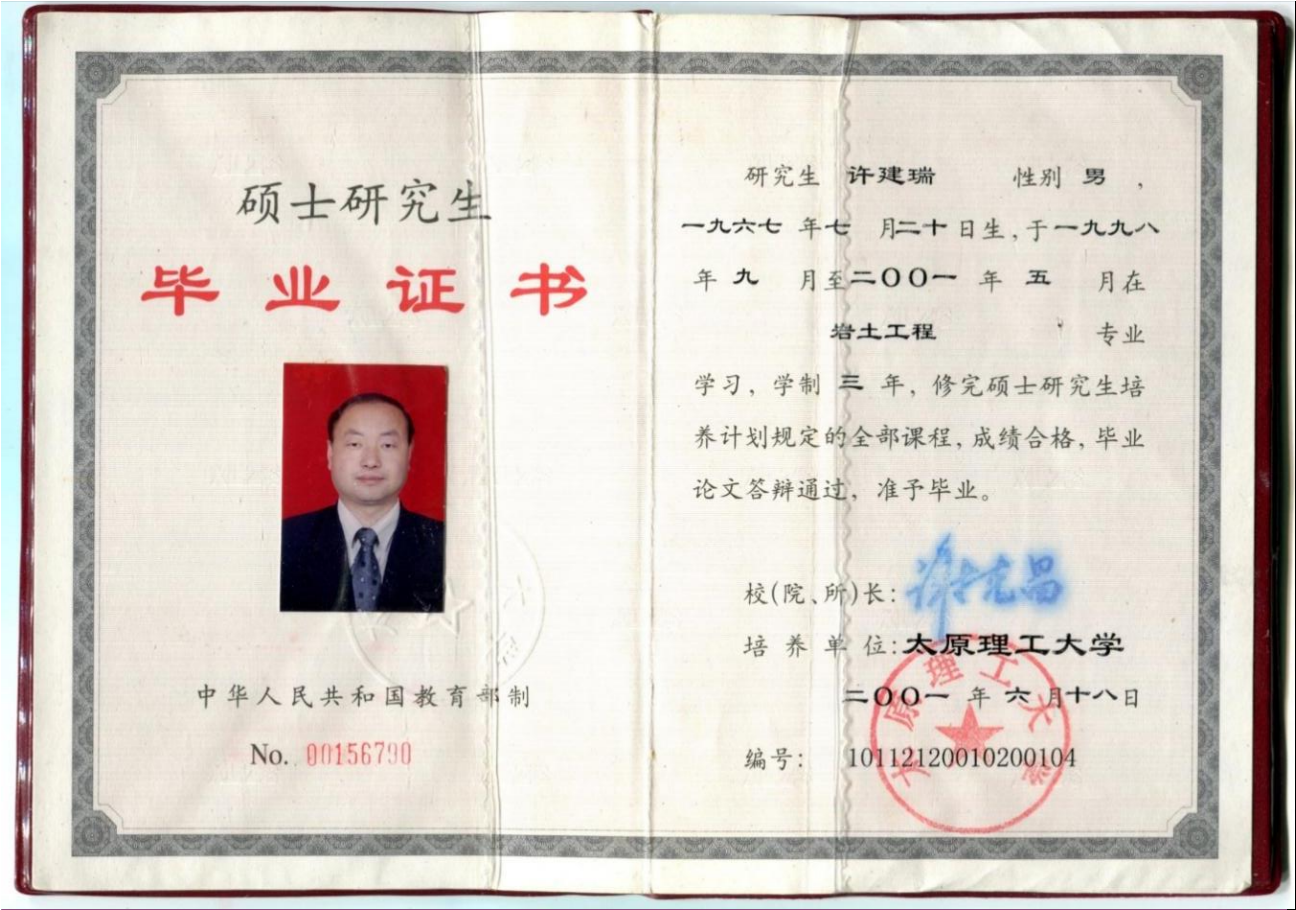 硕士研究生
毕业证书
中华人民共和国教育部制
No. 00156790
研究生 许建瑞 性别 男 ，
一九六七 年 七 月 二十 日生，于 一九九八
年 九 月至 二〇〇一 年 五 月在
岩土工程 专业
学习，学制 三 年，修完硕士研究生培
养计划规定的全部课程，成绩合格，毕业
论文答辩通过，准予毕业。
校(院、所)长：
培养单位：太原理工大学
二〇〇一 年 六 月十八日
编号： 10112120010200104
太原理工大学